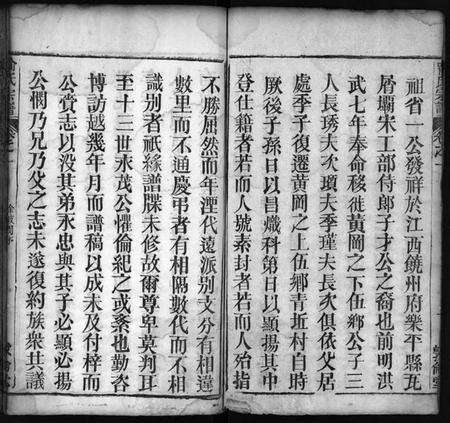 祖省一公發祥於江西饒州府樂平縣瓦
屑壩宋工部侍郎子才公之裔也前明洪
武七年奉命移徙黃岡之下伍鄉公子三
人長琇夫次瓊夫季瑾夫長次俱依父居
處季子復遷黃岡之上伍鄉青坵村自時
厥後子孫日以昌熾科第日以顯揚其中
登仕籍者若而人號素封者若而人殆指
不勝屈然而年湮代遠派別支分有相違
數里而不通慶弔者有相隔數代而不相
識別者祇緣譜牒未修故爾尊卑莫判耳
至十三世永茂公懼倫紀之或紊也勤咨
博訪越幾年月而譜稿以成未及付梓而
公賫志以没其弟永忠與其子必顯必揚
公憫乃兄乃父之志未遂復約族衆共議